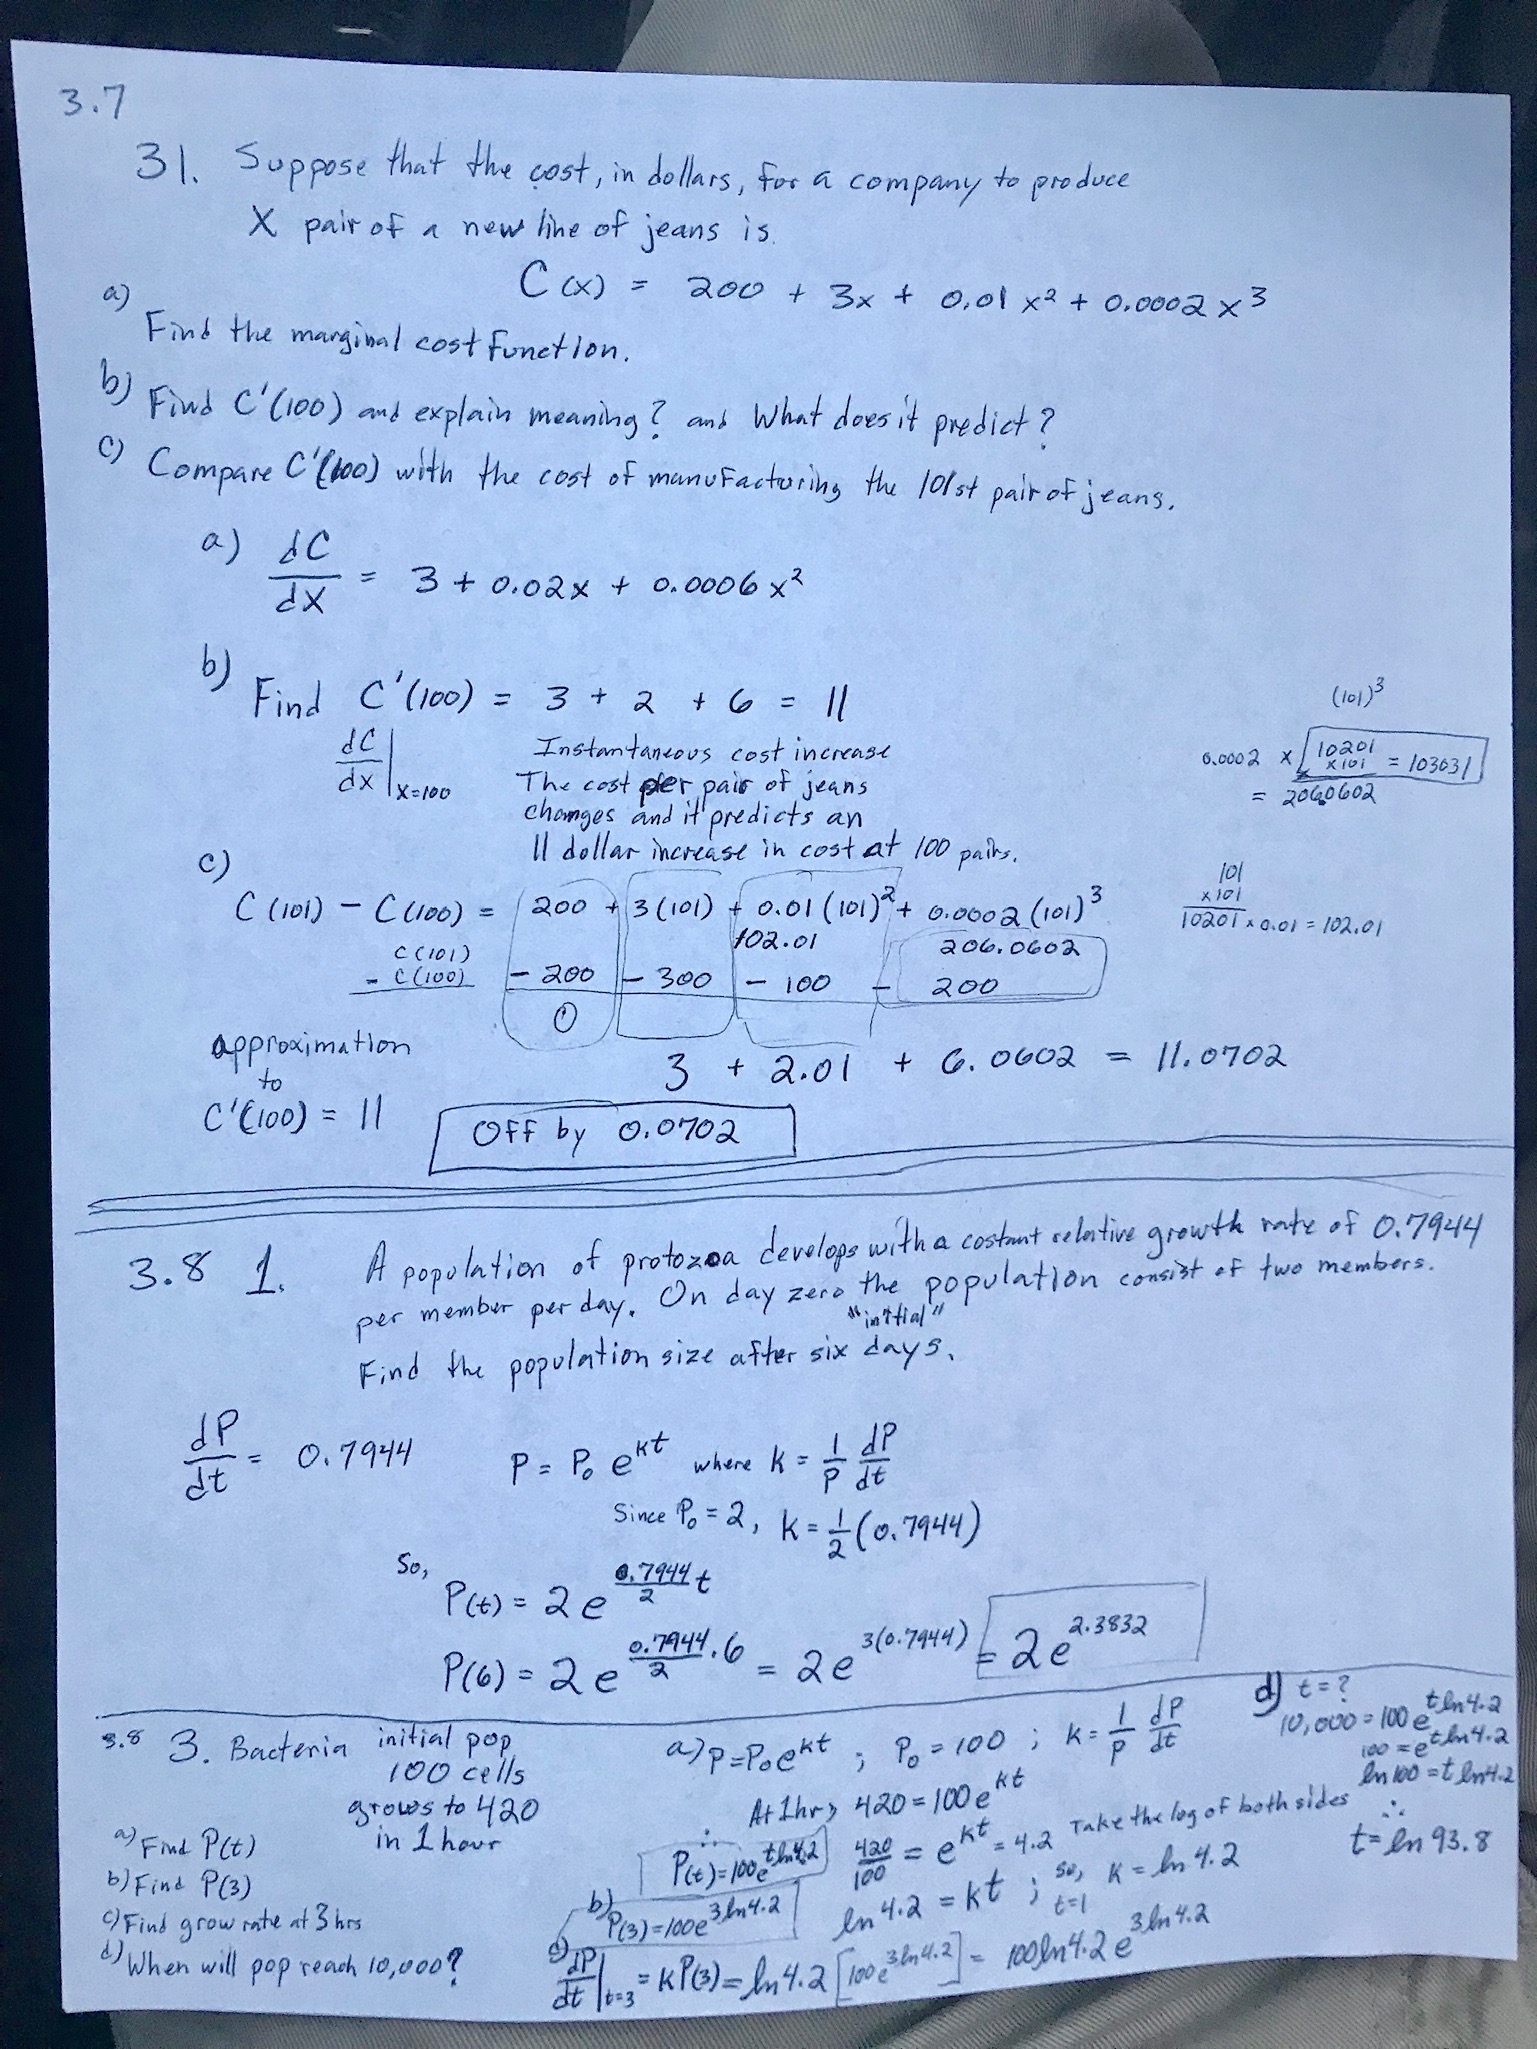 3.7
31. Suppose that the cost, in dollars, for a company to produce
X pair of a new line of jeans is.
C(x) = 200 + 3x + 0.01x² + 0.0002x³
a)
Find the marginal cost function.
b) Find C'(100) and explain meaning? and What does it predict?
c) Compare C'(100) with the cost of manufacturing the 101st pair of jeans.
a) dC/dX = 3 + 0.02x + 0.0006x²
b)
Find C'(100) = 3 + 2 + 6 = 11
dC/dx |x=100
Instantaneous cost increase
The cost per pair of jeans
changes and it predicts an
11 dollar increase in cost at 100 pairs.
(101)³
0.0002 × 10201 ×101 = 103031
= 2060602
101
×101
10201 × 0.01 = 102.01
c)
C(101) − C(100) = 200 + 3(101) + 0.01(101)² + 0.0002(101)³
C(101) 102.01 206.0602
− C(100) − 200 − 300 − 100 − 200
0
3 + 2.01 + 6.0602 = 11.0702
approximation
to
C'(100) = 11
Off by 0.0702
3.8 1. A population of protozoa develops with a costant relative growth rate of 0.7944
per member per day. On day zero the population consist of two members.
"initial"
Find the population size after six days.
dP/dt = 0.7944 P = P₀e^kt where k = 1/P dP/dt
Since P₀ = 2, k = 1/2 (0.7944)
So,
P(t) = 2e^(0.7944/2 t)
P(6) = 2e^(0.7944/2 · 6) = 2e^3(0.7944) = 2e^2.3832
3.8 3. Bacteria initial pop
100 cells
grows to 420
in 1 hour
a) Find P(t)
b) Find P(3)
c) Find grow rate at 3 hrs
d) When will pop reach 10,000?
a) P=P₀e^kt ; P₀ = 100 ; k = 1/P dP/dt
At 1hr, 420 = 100e^kt
420/100 = e^kt = 4.2 Take the log of both sides
ln 4.2 = kt ; so, t=1 k = ln 4.2
∴ P(t) = 100e^(t ln 4.2)
b) P(3) = 100e^(3 ln 4.2)
c) dP/dt |t=3 = kP(3) = ln 4.2 [100e^(3 ln 4.2)] = 100 ln 4.2 e^(3 ln 4.2)
d) t = ?
10,000 = 100e^(t ln 4.2)
100 = e^(t ln 4.2)
ln 100 = t ln 4.2
∴
t = ln 93.8